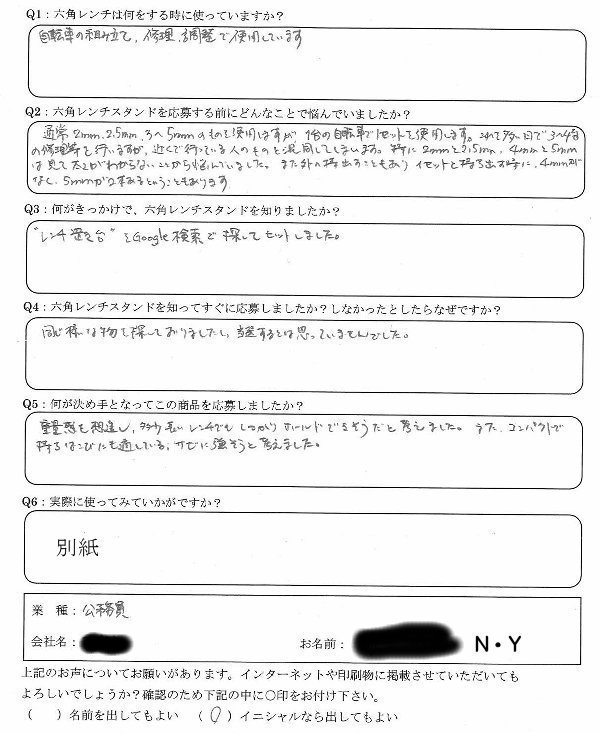 Q1：六角レンチは何をする時に使っていますか？
自転車の組み立て、修理、調整で使用しています
Q2：六角レンチスタンドを応募する前にどんなことで悩んでいましたか？
通常2mm、2.5mm、3〜5mmのものを使用しますが、1台の自転車で1セットを使用します。これで多い日で3〜4台
の修理等を行いますが、近くで行っている人のものと混同してしまいます。特に2mmと2.5mm、4mmと5mm
は見て太さがわからないことから悩んでいました。また外へ持出すこともあり1セットと持ち出す時に、4mmが
なく、5mmが2本あるということもあります
Q3：何がきっかけで、六角レンチスタンドを知りましたか？
"レンチ置き台"をGoogle検索で探してヒットしました。
Q4：六角レンチスタンドを知ってすぐに応募しましたか？しなかったとしたらなぜですか？
同じ様な物を探しておりましたし、当選するとは思っていませんでした。
Q5：何が決め手となってこの商品を応募しましたか？
重量感も想違し、多少長いレンチでもしっかりホールドできそうだと考えました。また、コンパクトで
持ちはこびにも適している、サビに強そうと考えました。
Q6：実際に使ってみていかがですか？
別紙
業　種：公務員
会社名：
お名前：　N・Y
上記のお声についてお願いがあります。インターネットや印刷物に掲載させていただいても
よろしいでしょうか？確認のため下記の中に○印をお付け下さい。
（　）名前を出してもよい　（○）イニシャルなら出してもよい